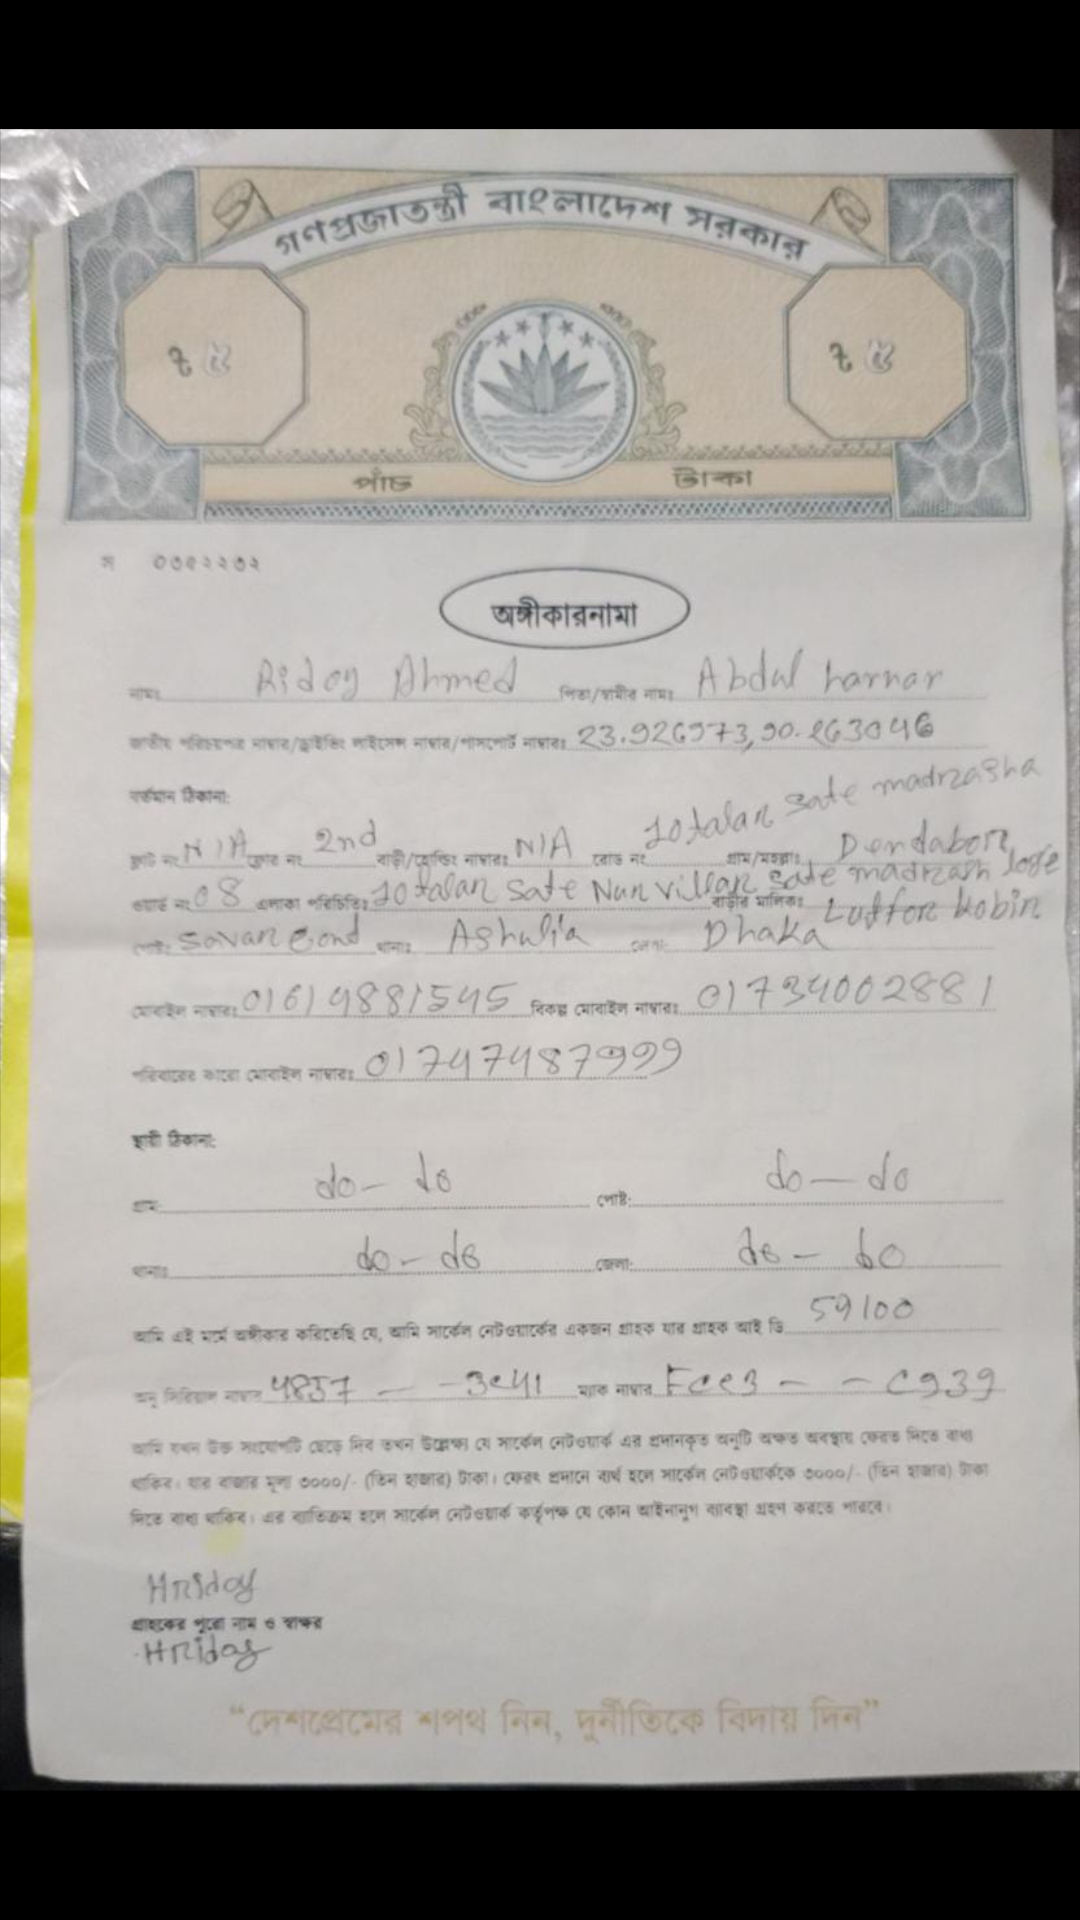 গণপ্রজাতন্ত্রী বাংলাদেশ সরকার
৳ ৫ ৳ ৫
পাঁচ টাকা
অঙ্গীকারনামা
নামঃ Ridoy Ahmed পিতা/স্বামীর নামঃ Abdul
জাতীয় পরিচয়পত্র নাম্বার/ড্রাইভিং লাইসেন্স নাম্বার/পাসপোর্ট নাম্বারঃ
বর্তমান ঠিকানা:
10 talar sate madrasha
ফ্লাট নং N/A ফ্লোর নং 2nd বাড়ী/হোল্ডিং নাম্বারঃ N/A রোড নং গ্রাম/মহল্লাঃ Dendabor
ওয়ার্ড নং 08 এলাকা পরিচিতিঃ 10 talar sate sate বাড়ীর মালিকঃ Lutfor
থানাঃ Ashulia জেলা: Dhaka
মোবাইল নাম্বারঃ 01614881545 বিকল্প মোবাইল নাম্বারঃ 01734002881
পরিবারের কারো মোবাইল নাম্বারঃ 01747487999
স্থায়ী ঠিকানা:
do - do পোষ্ট: do - do
থানাঃ do - do জেলা: do - do
আমি এই মর্মে অঙ্গীকার করিতেছি যে, আমি সার্কেল নেটওয়ার্কের একজন গ্রাহক যার গ্রাহক আই ডি 59100
অনু সিরিয়াল নাম্বার - - ম্যাক নাম্বার - - C939
আমি যখন উক্ত সংযোগটি ছেড়ে দিব তখন উল্লেক্ষ্য যে সার্কেল নেটওয়ার্ক এর প্রদানকৃত অনুটি অক্ষত অবস্থায় ফেরত দিতে বাধ্য
থাকিব। যার বাজার মূল্য ৩০০০/- (তিন হাজার) টাকা। ফেরৎ প্রদানে ব্যর্থ হলে সার্কেল নেটওয়ার্ককে ৩০০০/- (তিন হাজার) টাকা
দিতে বাধ্য থাকিব। এর ব্যতিক্রম হলে সার্কেল নেটওয়ার্ক কর্তৃপক্ষ যে কোন আইনানুগ ব্যাবস্থা গ্রহণ করতে পারবে।
Hriday
গ্রাহকের পুরো নাম ও স্বাক্ষর
Hriday
“দেশপ্রেমের শপথ নিন, দুর্নীতিকে বিদায় দিন”